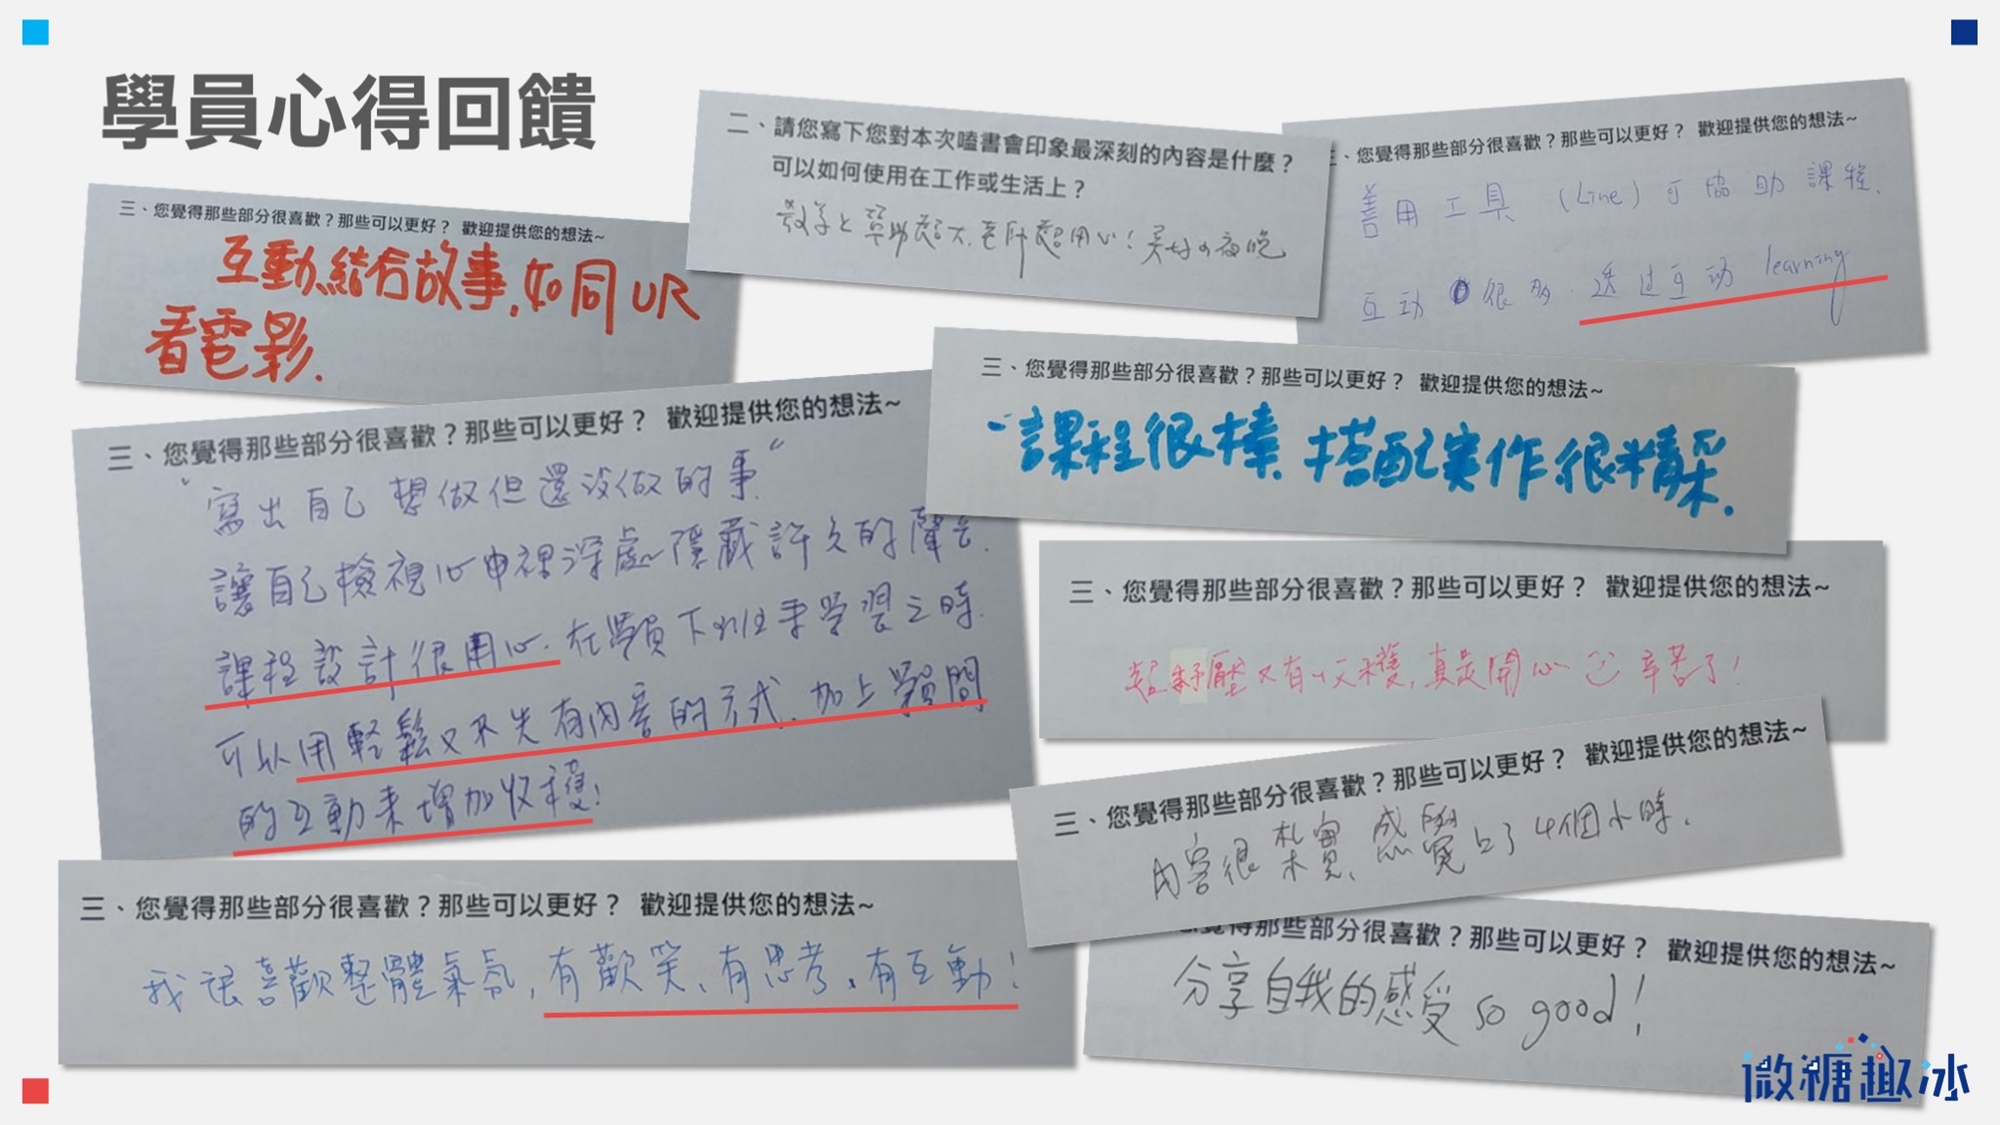 學員心得回饋
三、您覺得那些部分很喜歡？那些可以更好？ 歡迎提供您的想法~
互動、結合故事，如同UR
看電影.
二、請您寫下您對本次嗑書會印象最深刻的內容是什麼？
可以如何使用在工作或生活上？
老師超用心！美好の夜晚
三、您覺得那些部分很喜歡？那些可以更好？ 歡迎提供您的想法~
善用工具 (Line) 可協助課程.
互动很多. 透过互动 learning
三、您覺得那些部分很喜歡？那些可以更好？ 歡迎提供您的想法~
"寫出自己想做但還沒做的事"
讓自己檢視心中裡深處隱藏許久的聲音.
課程設計很用心. 在學員下班來學習之時.
可以用輕鬆又不失有內容的方式、加上學員間
的互動來增加收穫！
三、您覺得那些部分很喜歡？那些可以更好？ 歡迎提供您的想法~
課程很棒. 搭配實作.很精采.
三、您覺得那些部分很喜歡？那些可以更好？ 歡迎提供您的想法~
超紓壓又有收穫,真是開心 辛苦了！
三、您覺得那些部分很喜歡？那些可以更好？ 歡迎提供您的想法~
內容很紮實、感覺上了4個小時.
三、您覺得那些部分很喜歡？那些可以更好？ 歡迎提供您的想法~
我很喜歡整體氣氛, 有歡笑、有思考、有互動！
覺得那些部分很喜歡？那些可以更好？ 歡迎提供您的想法~
分享自我的感受 so good！
微糖趣冰